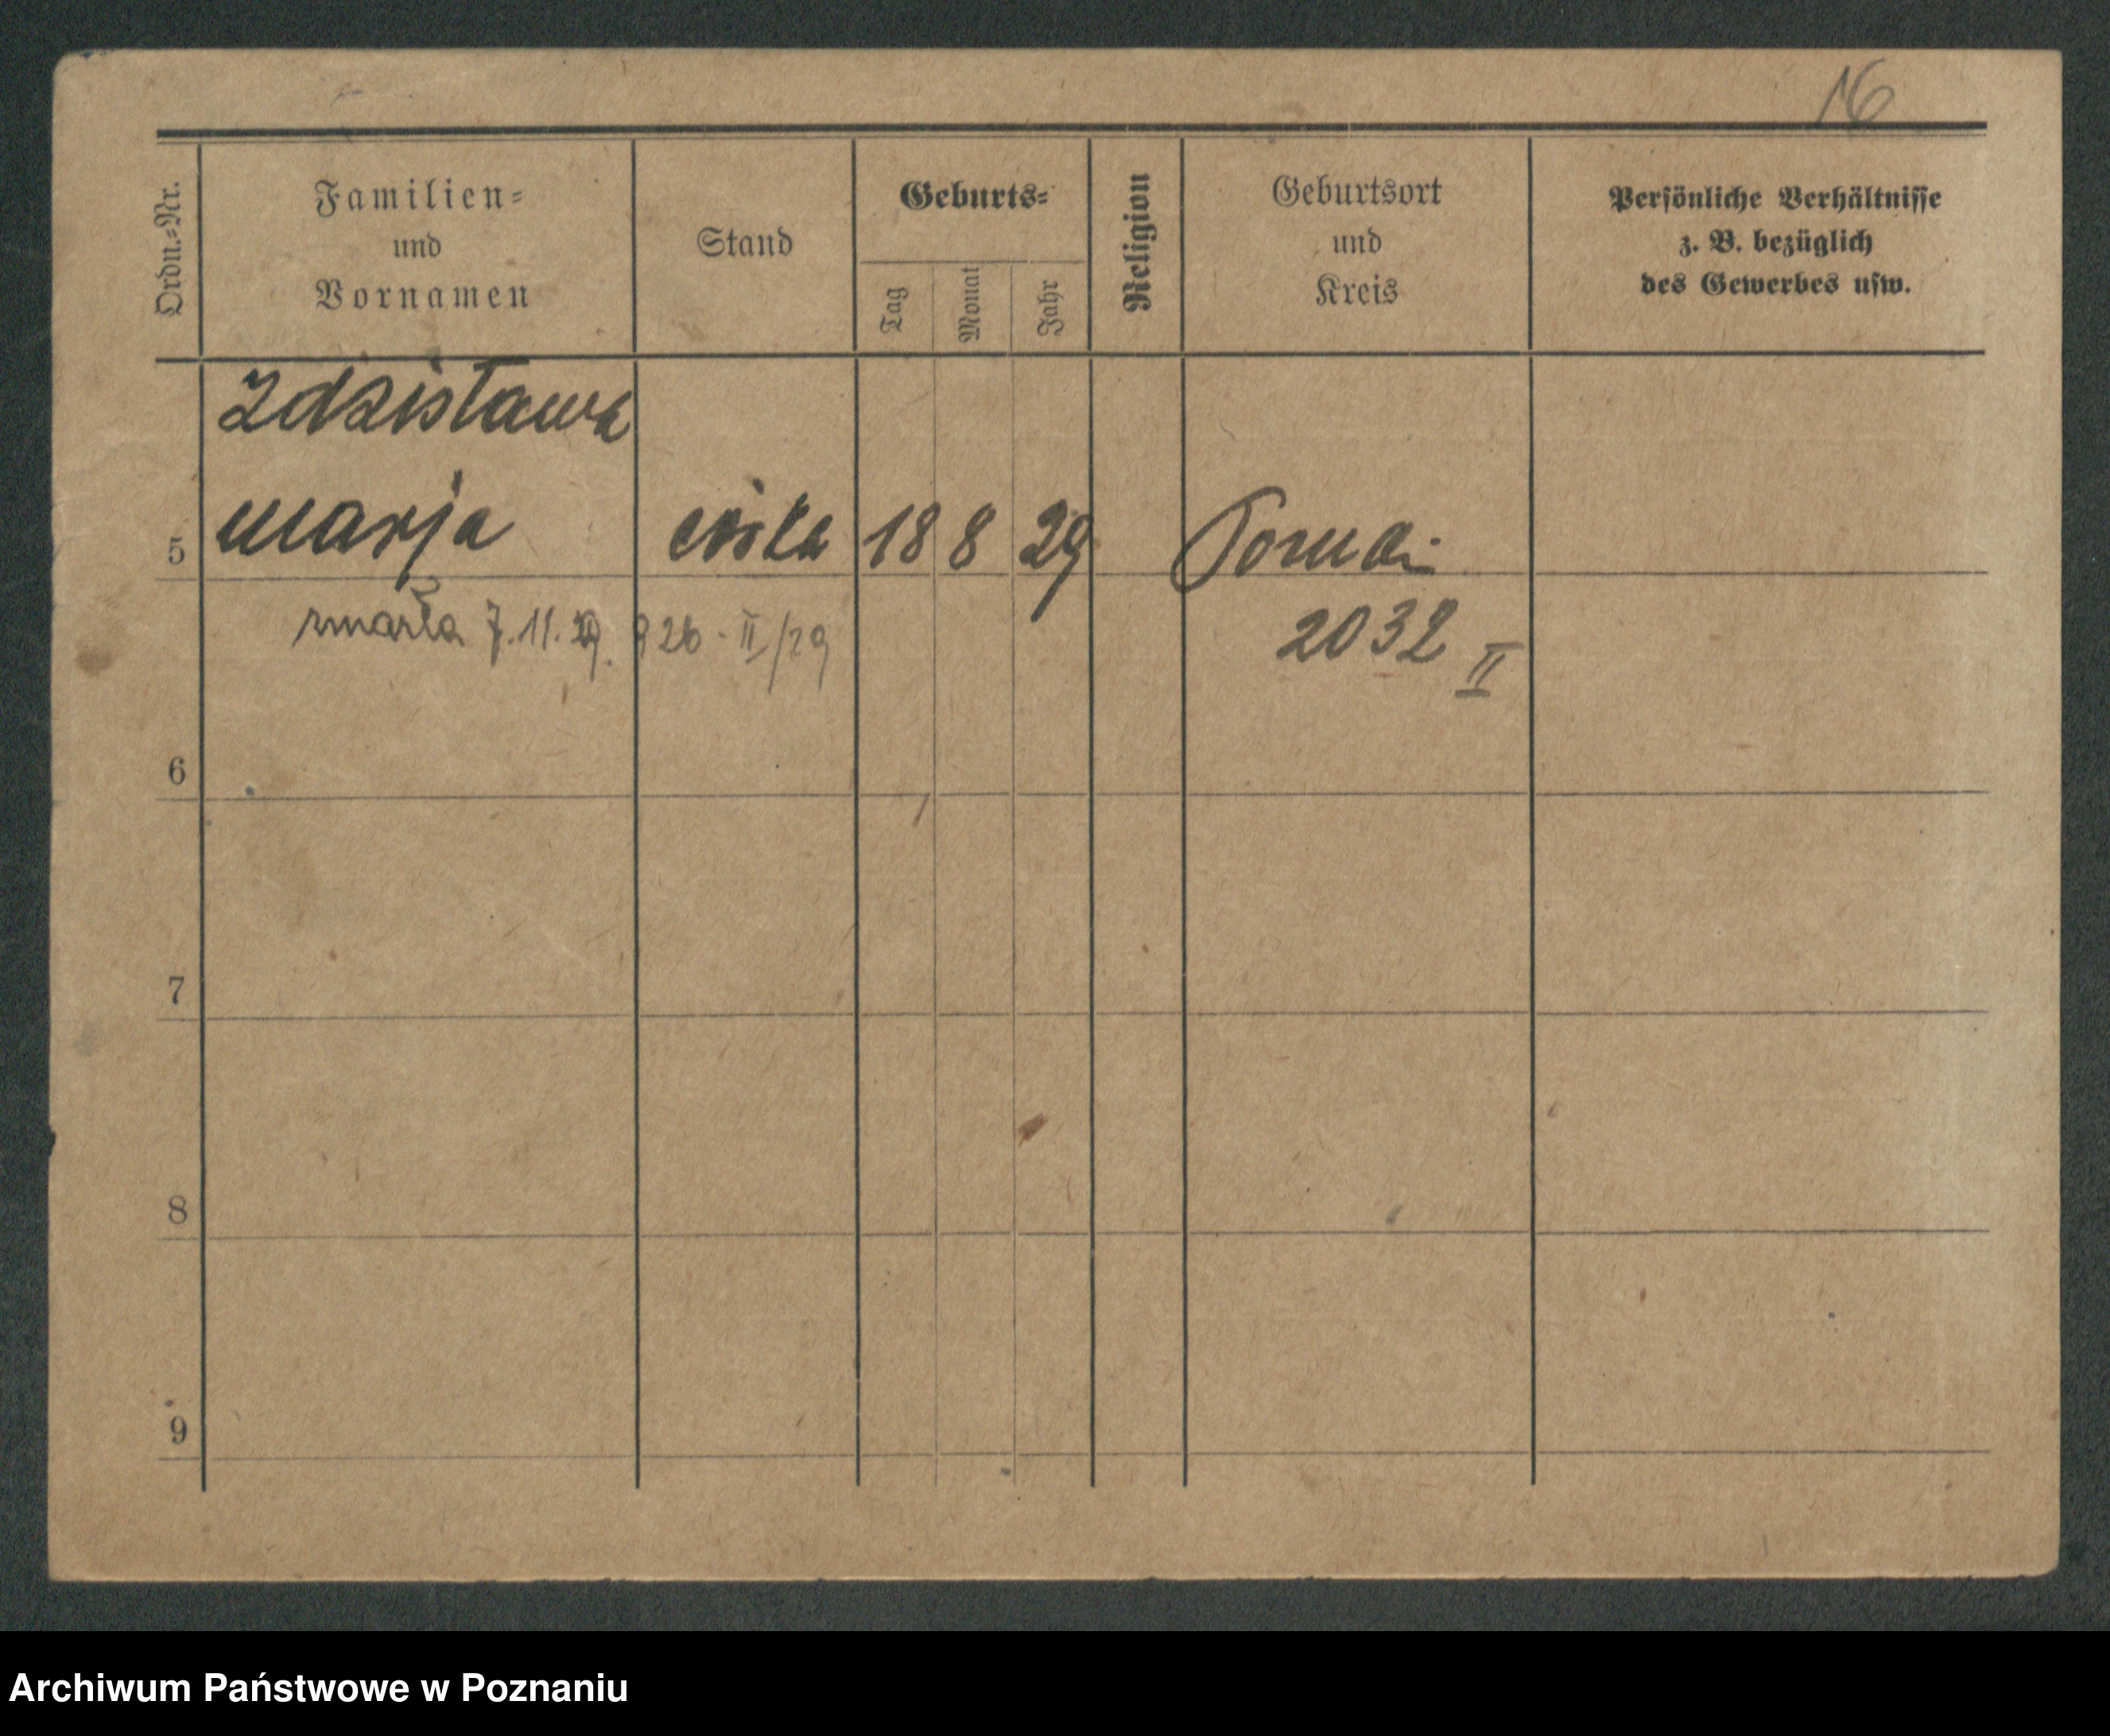 16
Ordn.-Nr.
Familien-
und
Vornamen
Stand
Geburts-
Tag
Monat
Jahr
Religion
Geburtsort
und
Kreis
Persönliche Verhältnisse
z. B. bezüglich
des Gewerbes usw.
Zdzisława
5 Marja córka 18 8 29
zmarła 7.11.29. 926-II/29
2032 II
6
7
8
9
Archiwum Państwowe w Poznaniu